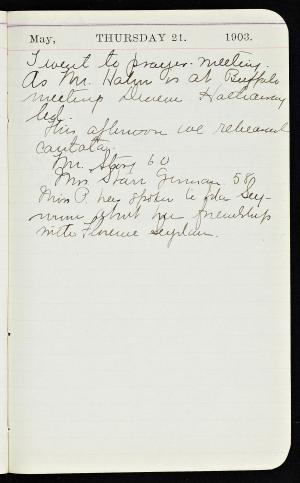 May, THURSDAY 21. 1903.
I went to prayer-meeting.
As Mr. Hahn is at Buffalo
meeting Deacon Hathaway
led.
This afternoon we rehearsed
cantata.
Mr. Story 60
Miss Starr German 50
Miss P. has spoken to Ida Sey-
mour about her friendship
with Florence